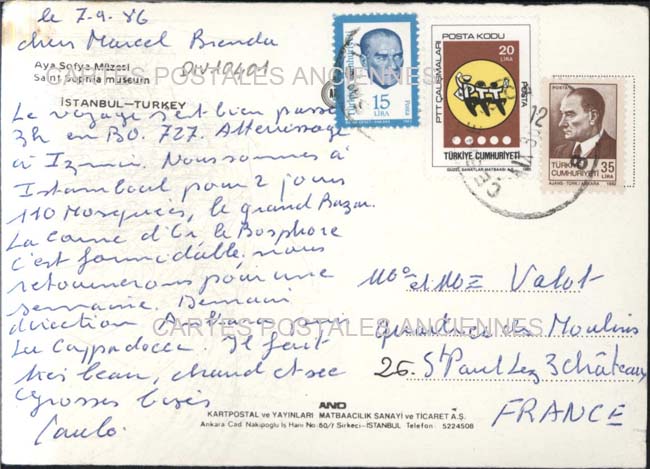 le 7-9.86
cher Marcel Brenda
Aya Sofya Müzesi
Saint Sophia museum
DIV10401
İSTANBUL-TURKEY
Le voyage s'est bien passé
3h en BO. 727. Atterrissage
à Izmir. Nous sommes à
Istamboul pour 2 jours
110 Mosquées, le grand Bazar.
La Corne d'Or le Bosphore
C'est formidable. nous
retournerons pour une
semaine. Demain
direction Ankara puis
La Cappadoce. Il fait
très beau, chaud et sec
Grosses bises
Türkiye Cumhuriyeti
15
LİRA
Posta
POSTA KODU
20
LİRA
PTT ÇALIŞMALARI
POSTA
PTT
TÜRKİYE CUMHURİYETİ
GÜZEL SANATLAR MATBAASI A.Ş. 1985
POSTA
TÜRKİYE
CUMHURİYETİ
35
LİRA
AJANS-TÜRK/ANKARA 1982
12
Me et Mr Valot
quartier des Moulins
26. St Paul Lez 3 châteaux
FRANCE
CARTES POSTALES ANCIENNES
CARTES POSTALES ANCIENNES
AND
KARTPOSTAL ve YAYINLARI MATBAACILIK SANAYİ ve TİCARET A.Ş.
Ankara Cad Nakipoğlu İş Hanı No:60/7 Sirkeci-İSTANBUL Telefon: 5224508